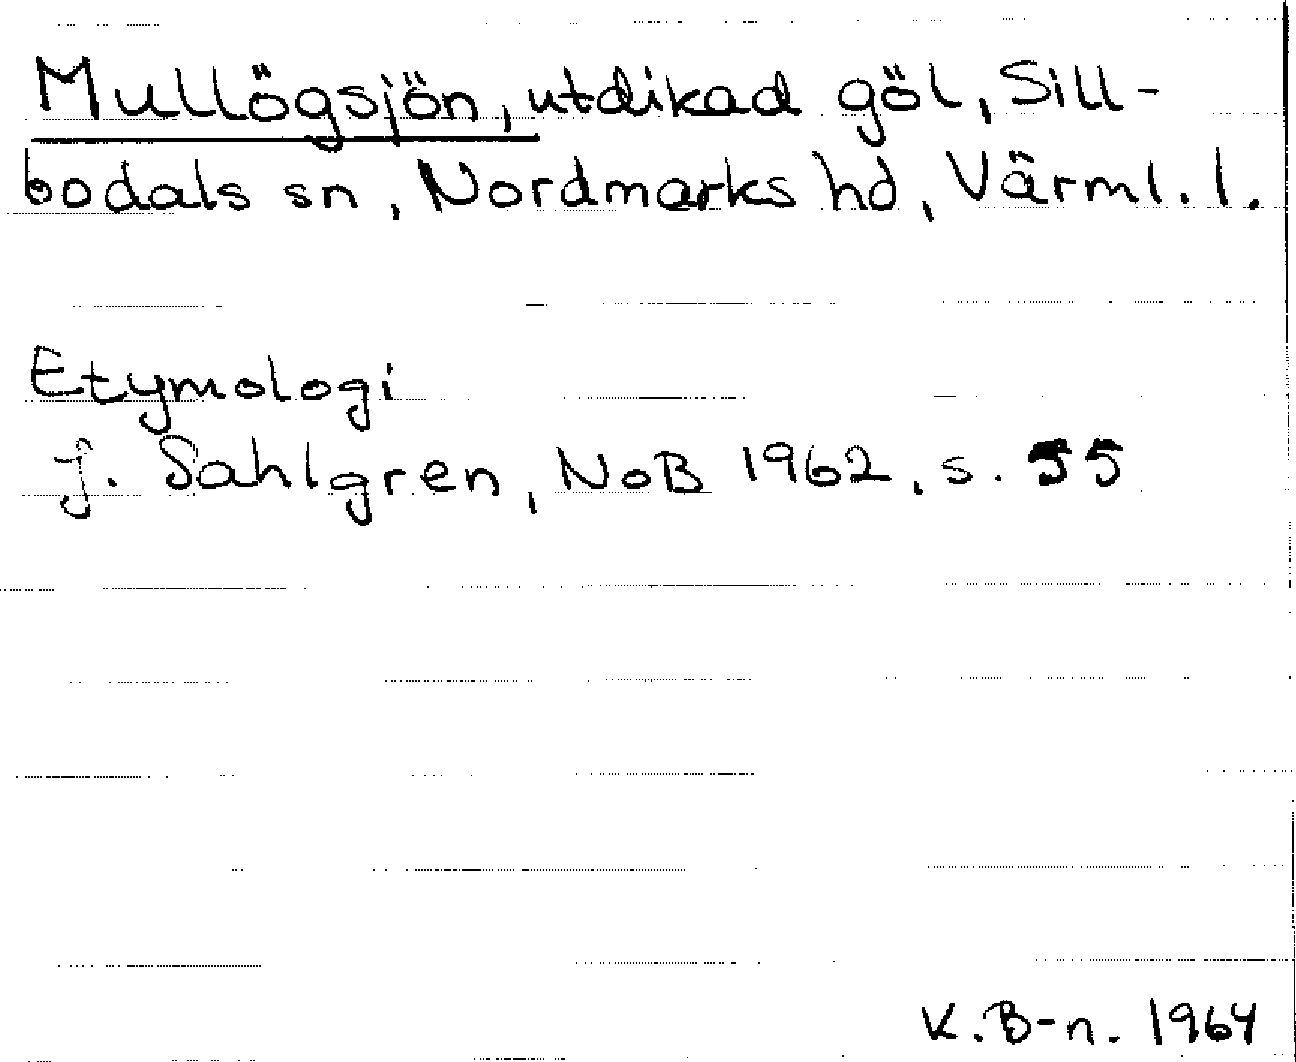 Mullögsjön, utdikad göl, Sill-
bodals sn, Nordmarks hd, Värml. l.
Etymologi
J. Sahlgren, NoB 1962, s. 55
K. B-n. 1964